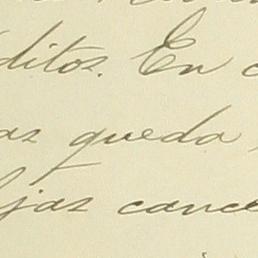 ditos. En c
as queda
jas cance